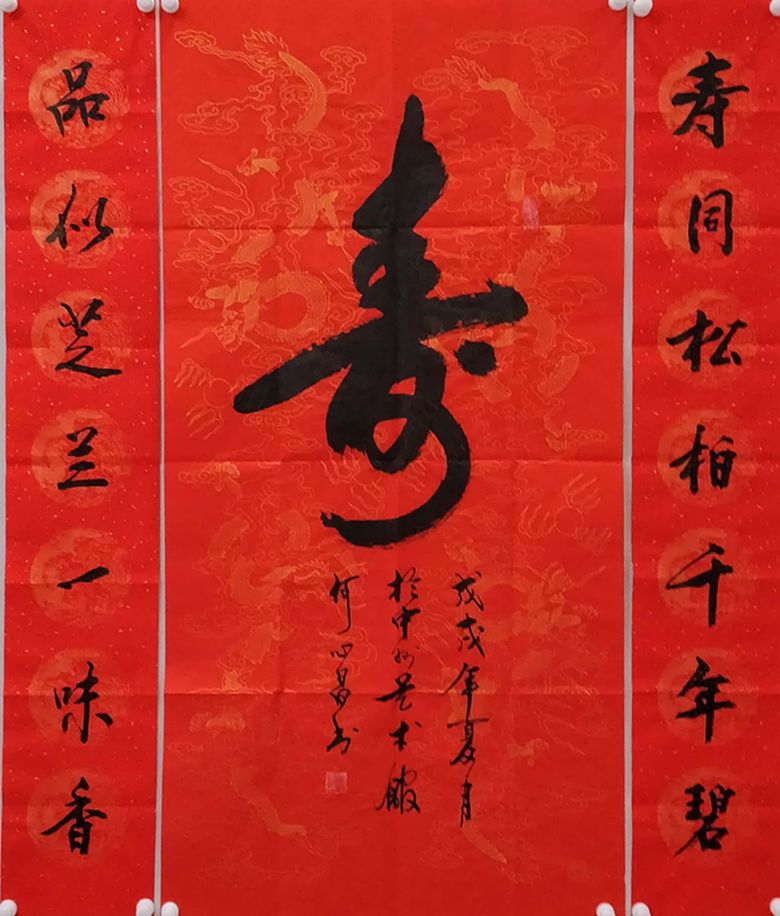 寿同松柏千年碧
寿
戊戌年夏月
於中州术馆
何心昌书
品似芝兰一味香